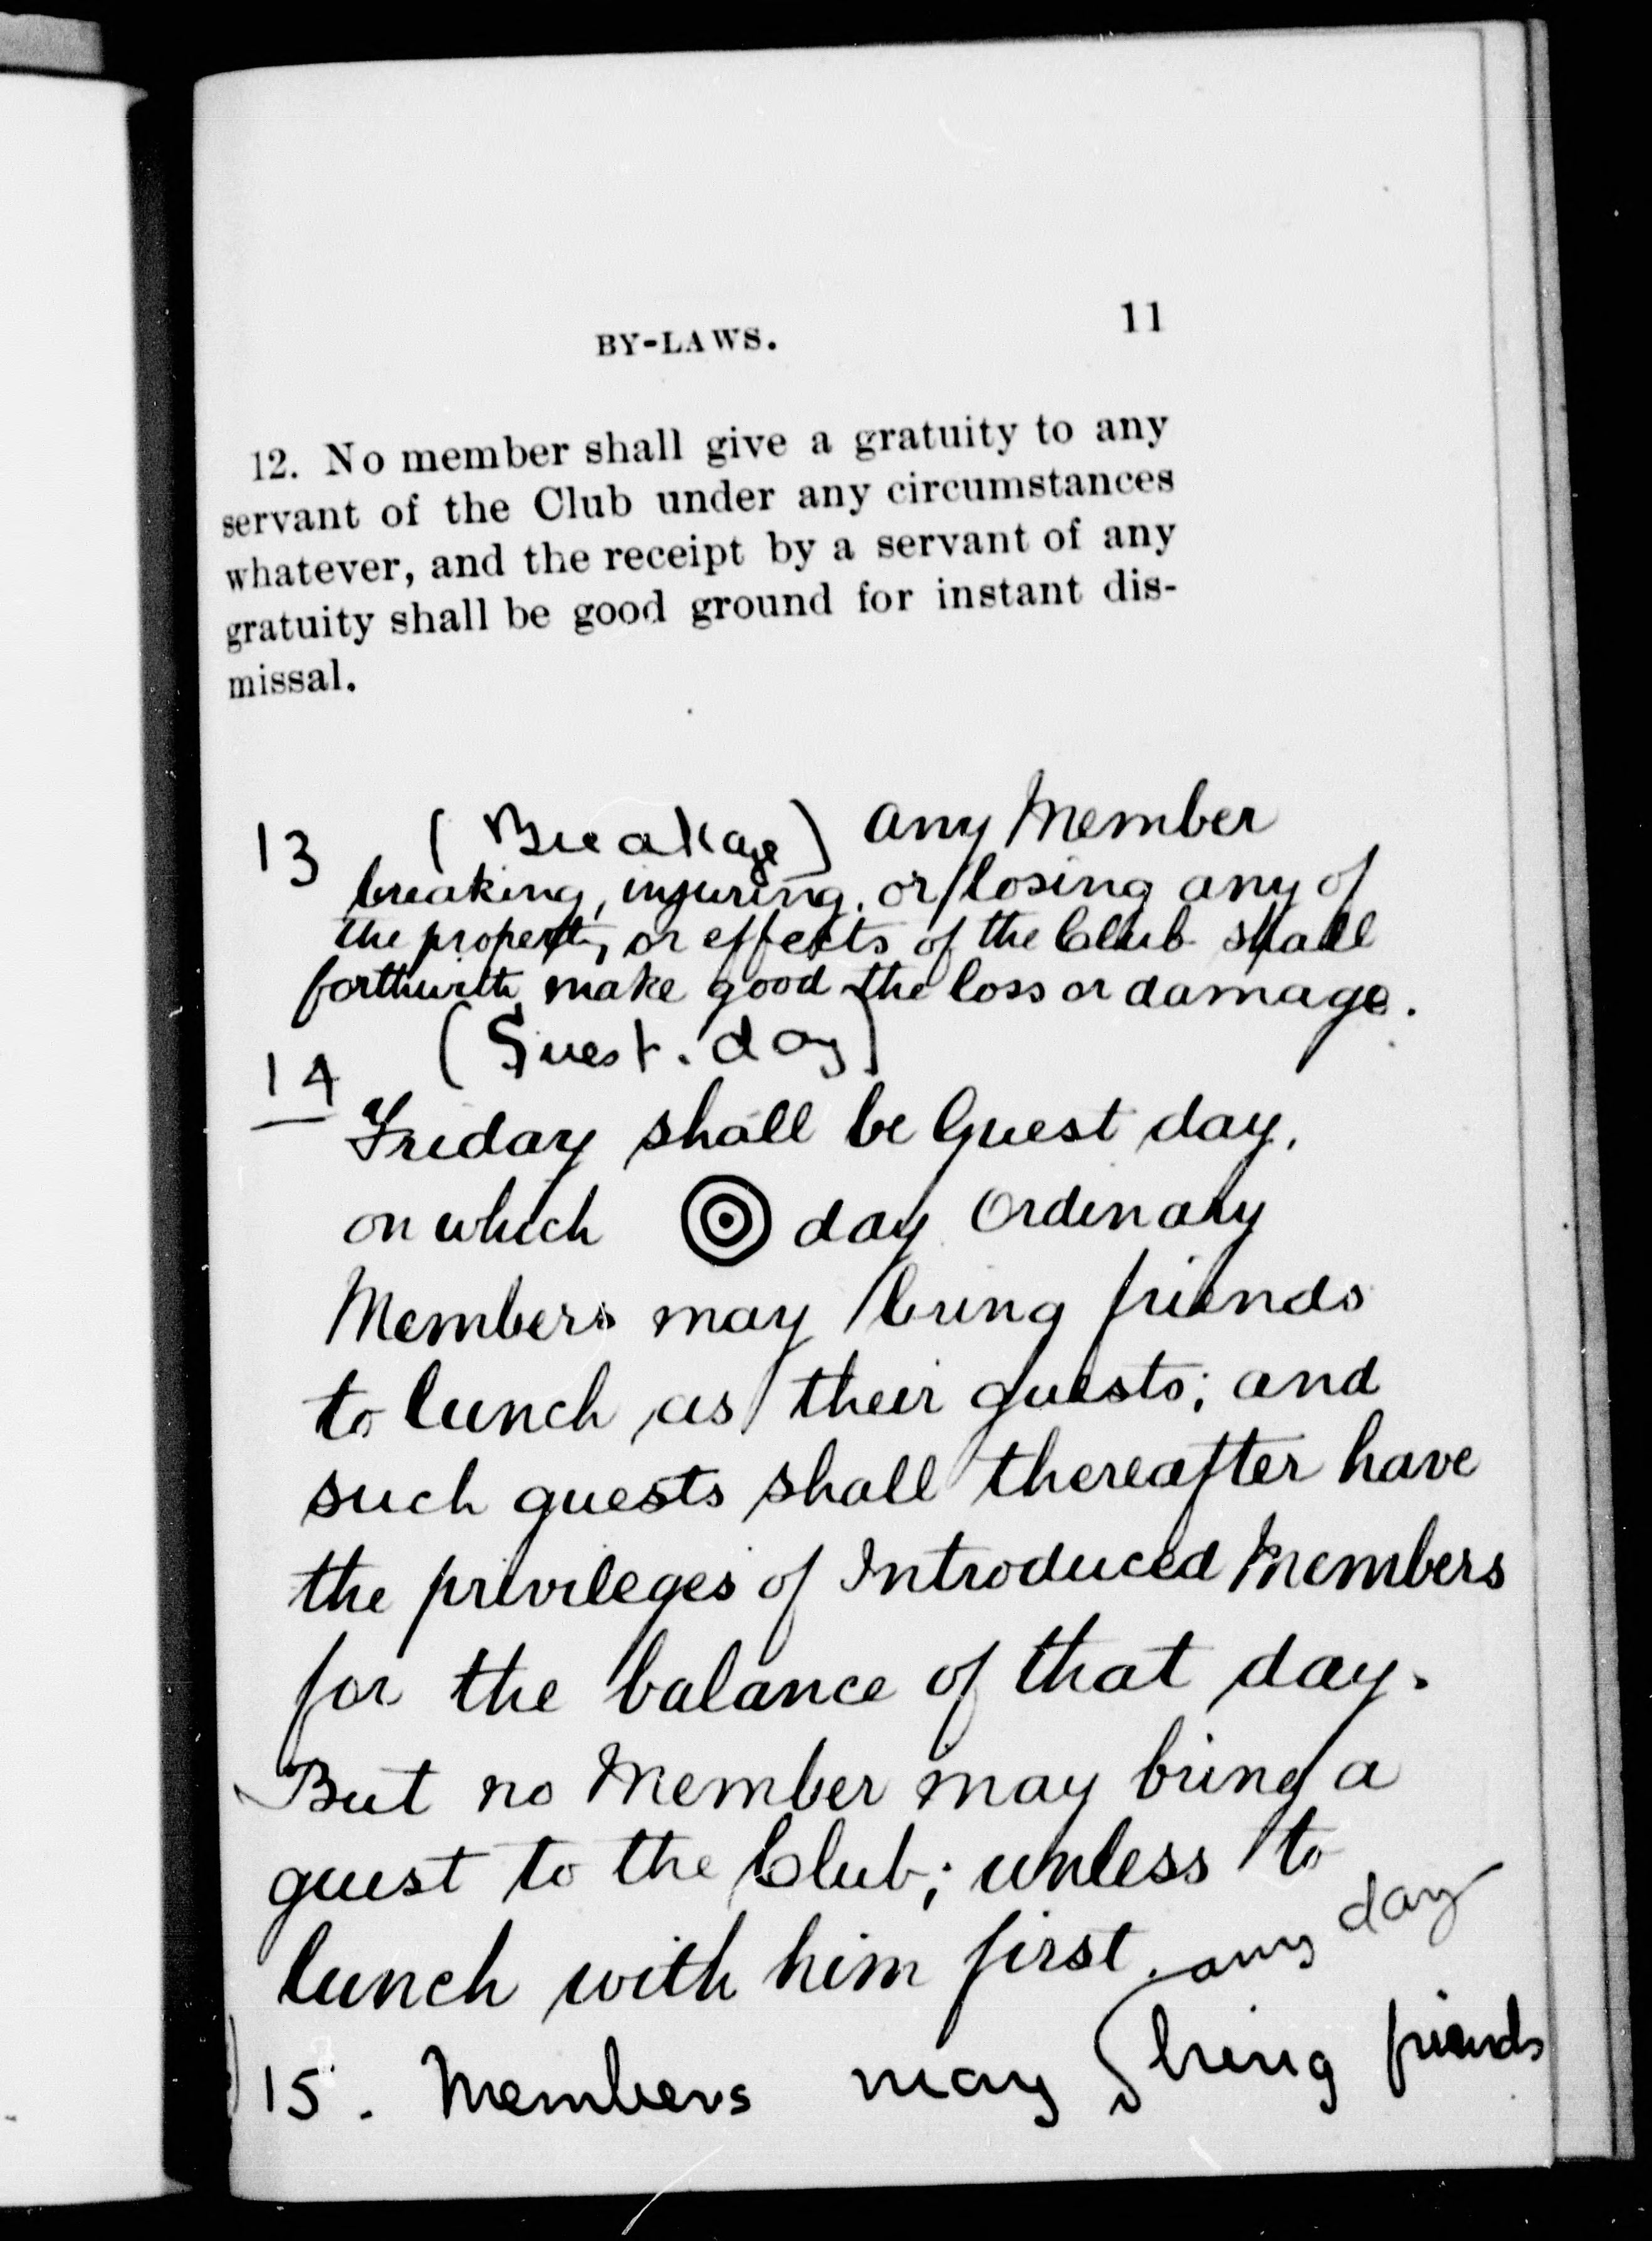 BY-LAWS. 11
12. No member shall give a gratuity to any
servant of the Club under any circumstances
whatever, and the receipt by a servant of any
gratuity shall be good ground for instant dis-
missal.
13 (Breakage) any Member
breaking, injuring, or losing any of
the property, or effects of the Club shall
forthwith make good the loss or damage.
14 (Guest. day)
Friday shall be Guest day,
on which day Ordinary
Members may bring friends
to lunch as their guests; and
such guests shall thereafter have
the privileges of Introduced Members
for the balance of that day.
But no Member may bring a
guest to the Club; unless to
lunch with him first.
any day
15. Members may bring friends